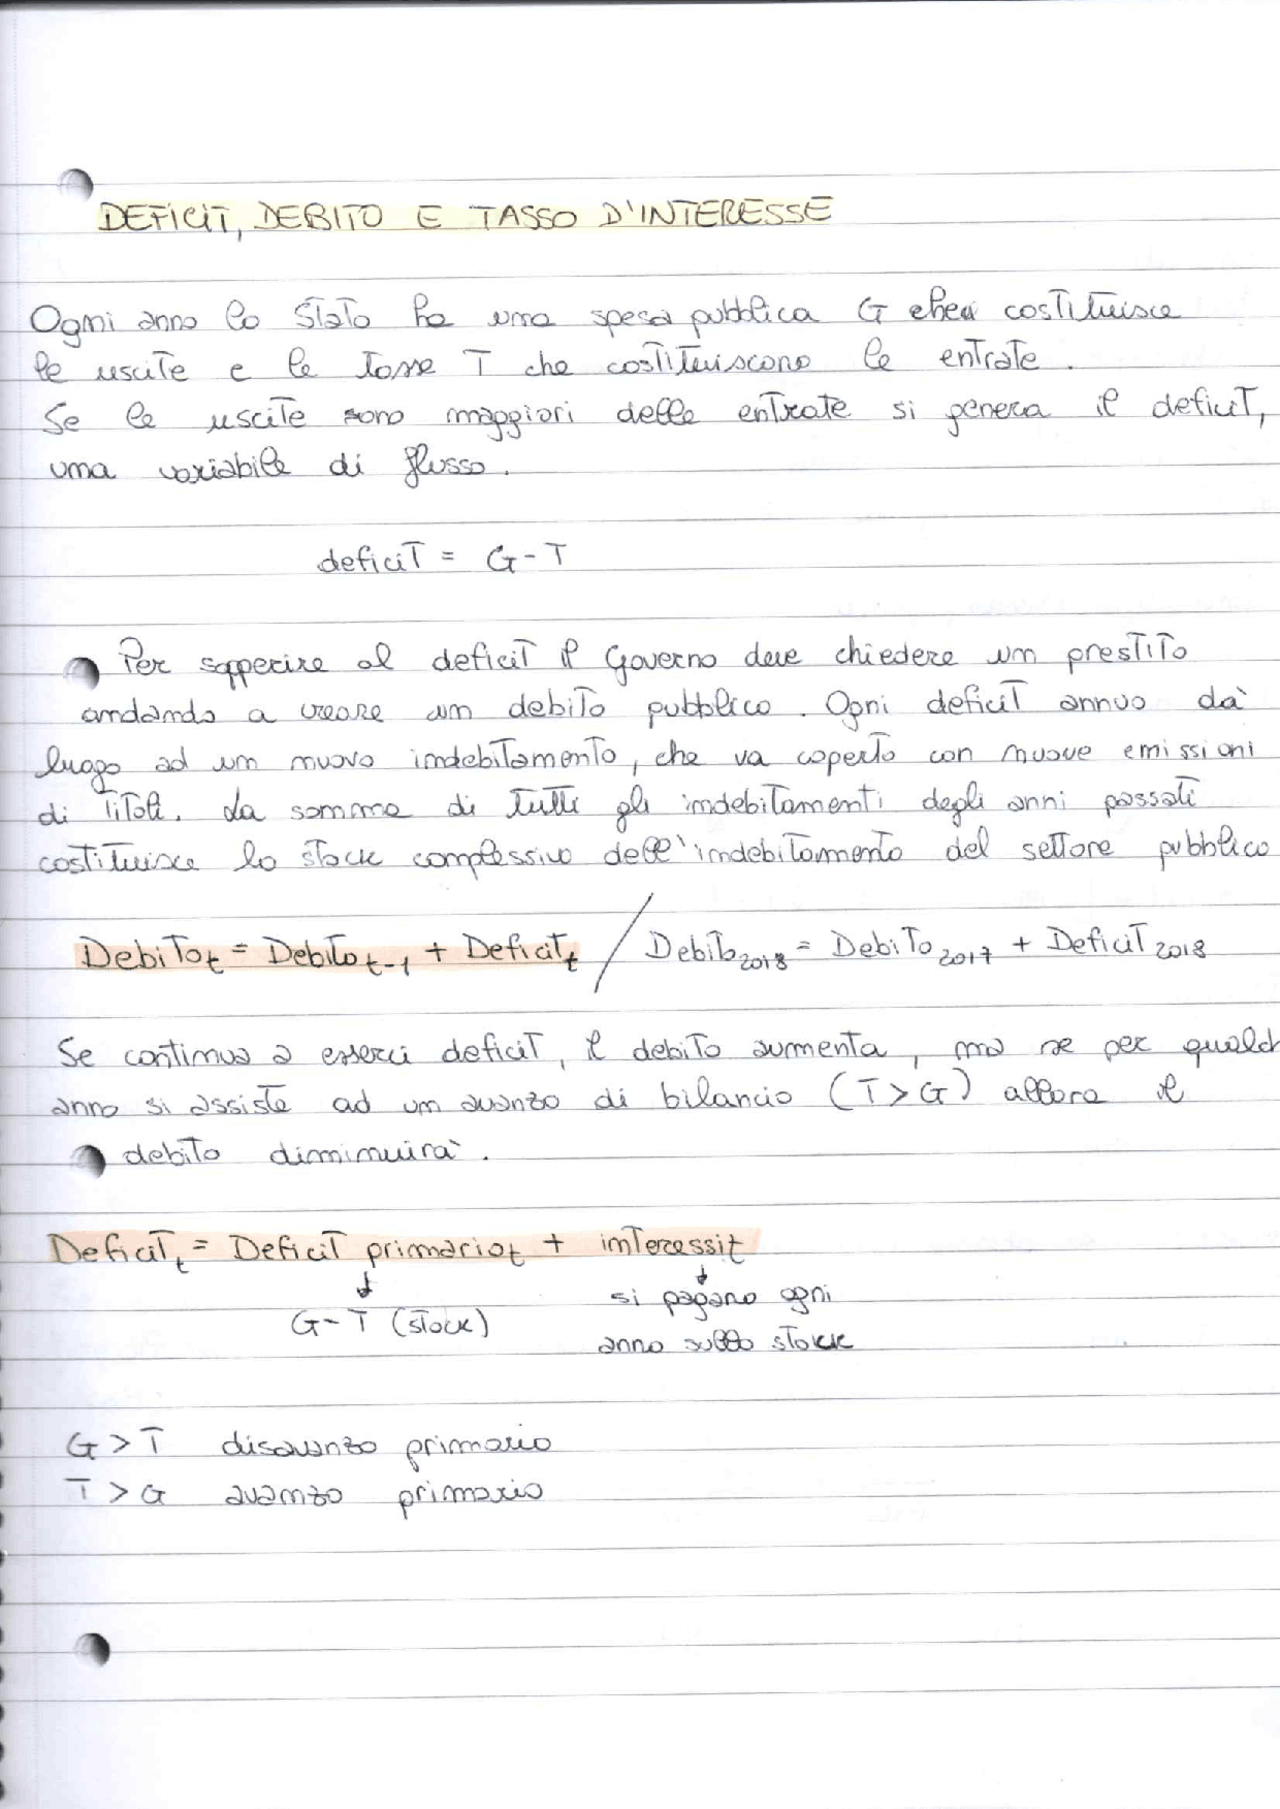 DEFICIT, DEBITO E TASSO D'INTERESSE
Ogni anno lo Stato ha una spesa pubblica G che costituisce
le uscite e le tasse T che costituiscono le entrate.
Se le uscite sono maggiori delle entrate si genera il deficit,
una variabile di flusso.
deficit = G - T
Per sopperire al deficit il Governo deve chiedere un prestito
andando a creare un debito pubblico. Ogni deficit annuo dà
luogo ad un nuovo indebitamento, che va coperto con nuove emissioni
di titoli. La somma di tutti gli indebitamenti degli anni passati
costituisce lo stock complessivo dell'indebitamento del settore pubblico
Debito t = Debito t-1 + Deficit t / Debito 2018 = Debito 2017 + Deficit 2018
Se continua a esserci deficit, il debito aumenta, ma se per qualch
anno si assiste ad un avanzo di bilancio (T > G) allora il
debito diminuirà.
Deficit t = Deficit primario t + interessi t
↓ ↓
G - T (stock) si pagano ogni
anno sullo stock
G > T disavanzo primario
T > G avanzo primario